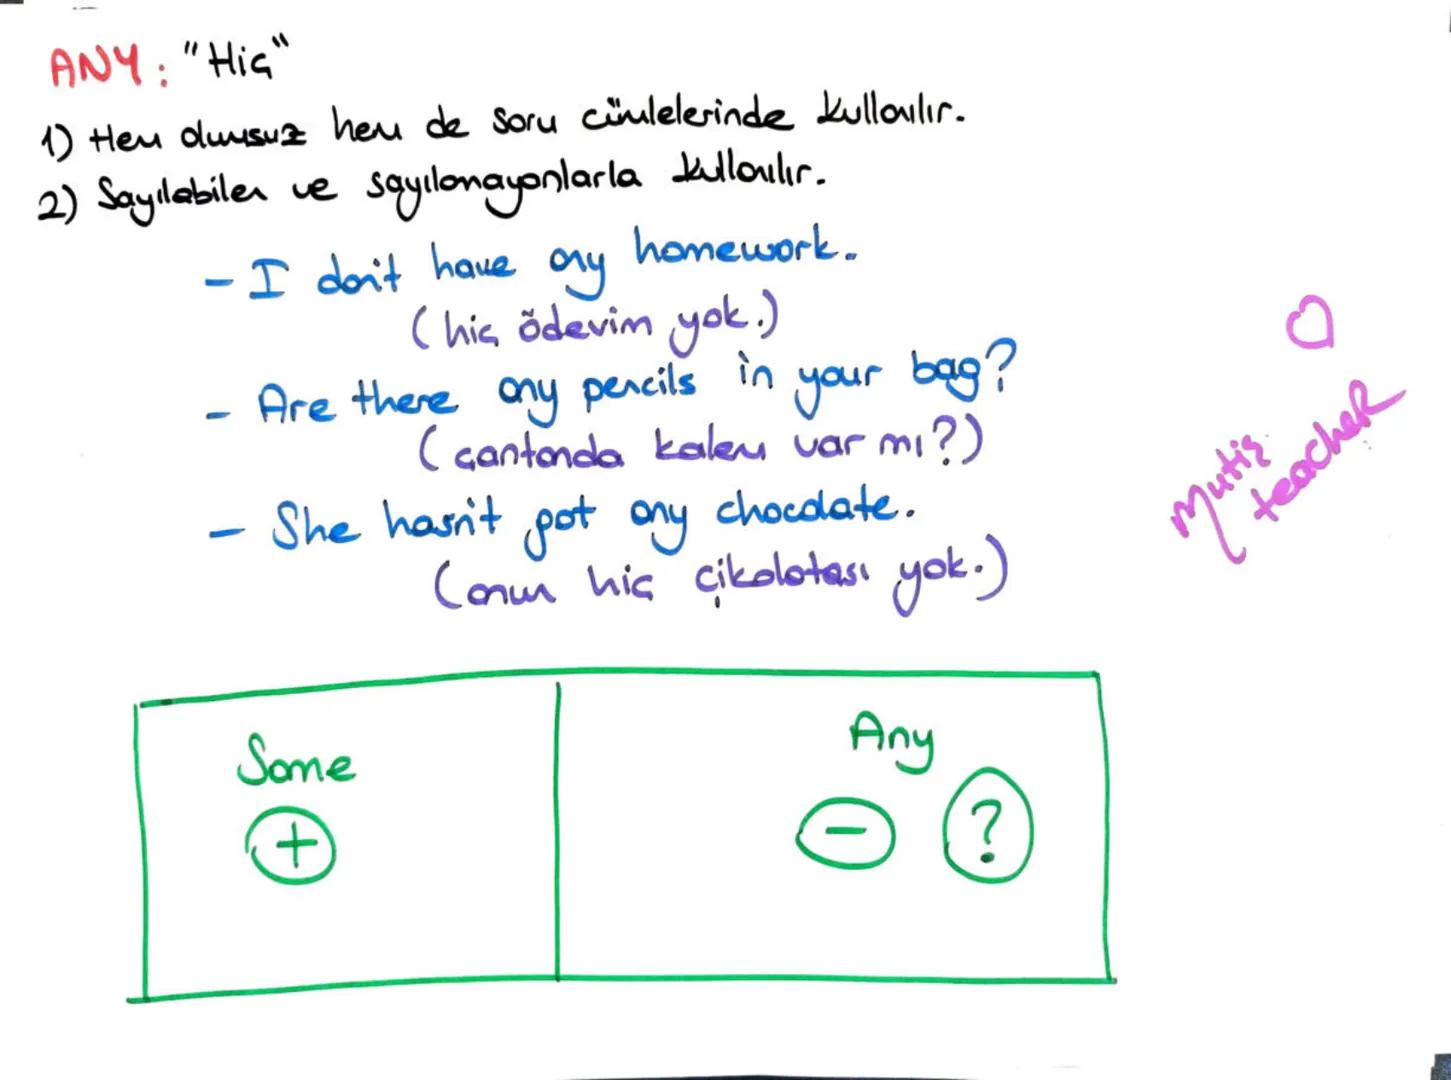 ANY: "Hiç"
1) Hem olumsuz hem de soru cümlelerinde kullanılır.
2) Sayılabilen ve sayılamayanlarla kullanılır.
- I don't have any homework.
(hiç ödevim yok.)
- Are there any pencils in your bag?
(çantanda kalem var mı?)
- She hasn't got any chocolate.
(onun hiç çikolatası yok.)
Mutiş
teacher
Some
+
Any
- ?